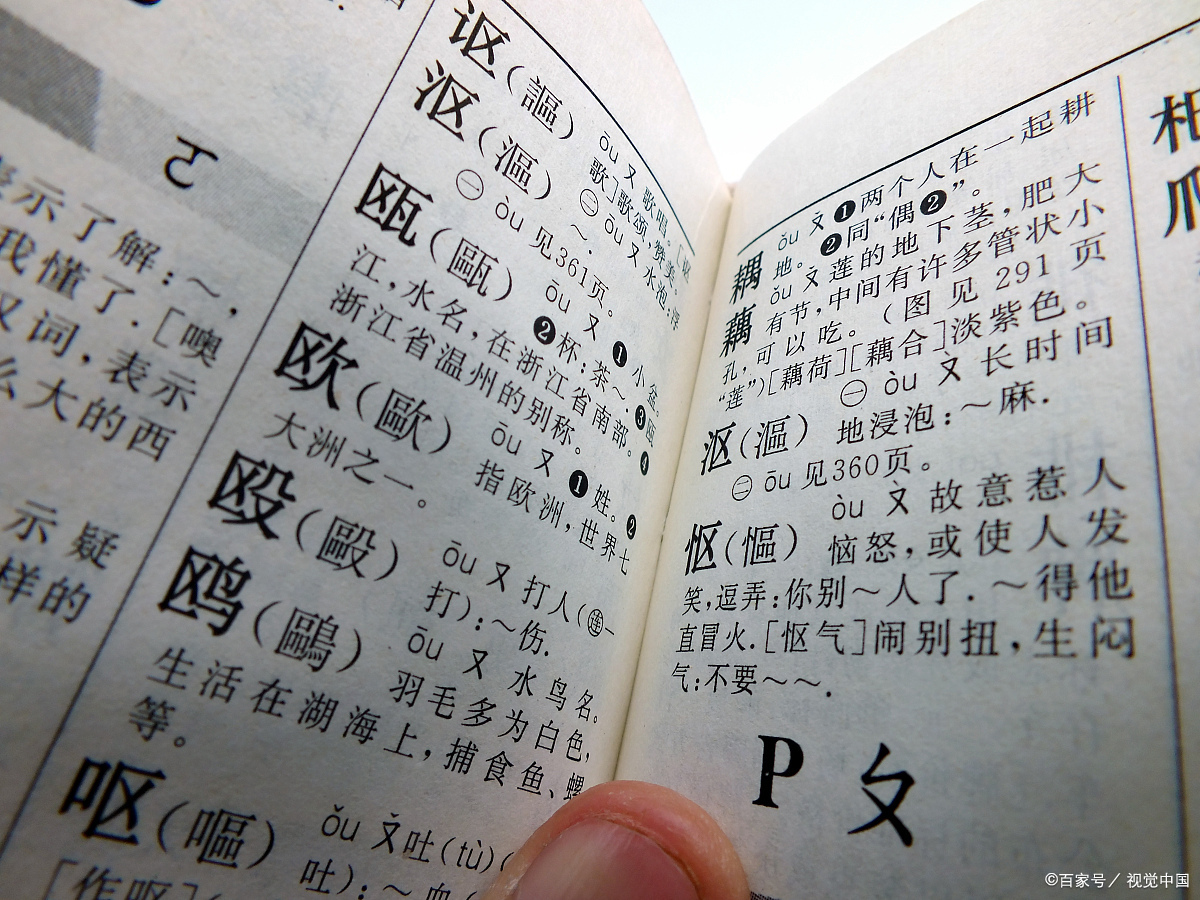 ㄛ
表示了解：～，
我懂了.［噢
叹词，表示
么大的西
示疑
样的
讴(謳) ōu ㄡ 歌唱。［讴
歌］歌颂，赞美。
沤(漚) ㊁ ōu ㄡ 水泡：浮
～.
㊀ òu 见361页。
瓯(甌) ōu ㄡ ❶小盆。
❷杯：茶～. ❸瓯
江，水名，在浙江省南部。❹
浙江省温州的别称。
欧(歐) ōu ㄡ ❶姓。❷
指欧洲，世界七
大洲之一。
殴(毆) ōu ㄡ 打人(㊣连一
打)：～伤.
鸥(鷗) ōu ㄡ 水鸟名。
羽毛多为白色，
生活在湖海上，捕食鱼、螺
等。
呕(嘔) ǒu ㄡˇ 吐(tù)(
吐)：～血(
［作呕］(
耦 ǒu ㄡˇ ❶两个人在一起耕
地。❷同“偶❷”。
藕 ǒu ㄡˇ 莲的地下茎，肥大
有节，中间有许多管状小
孔，可以吃。（图见291页
“莲”)［藕荷］［藕合］淡紫色。
沤(漚) ㊀ òu ㄡˋ 长时间
地浸泡：～麻.
㊁ ōu 见360页。
怄(慪) òu ㄡˋ 故意惹人
恼怒，或使人发
笑，逗弄：你别～人了. ～得他
直冒火.［怄气］闹别扭，生闷
气：不要～～.
P ㄆ
爬
©百家号／视觉中国